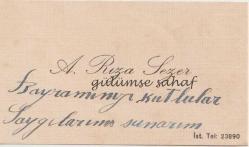 A. Rıza Sezer
gidumse sahaf
Bayramınızı kutlular
Saygılarımı sunarım
İst. Tel: 23890